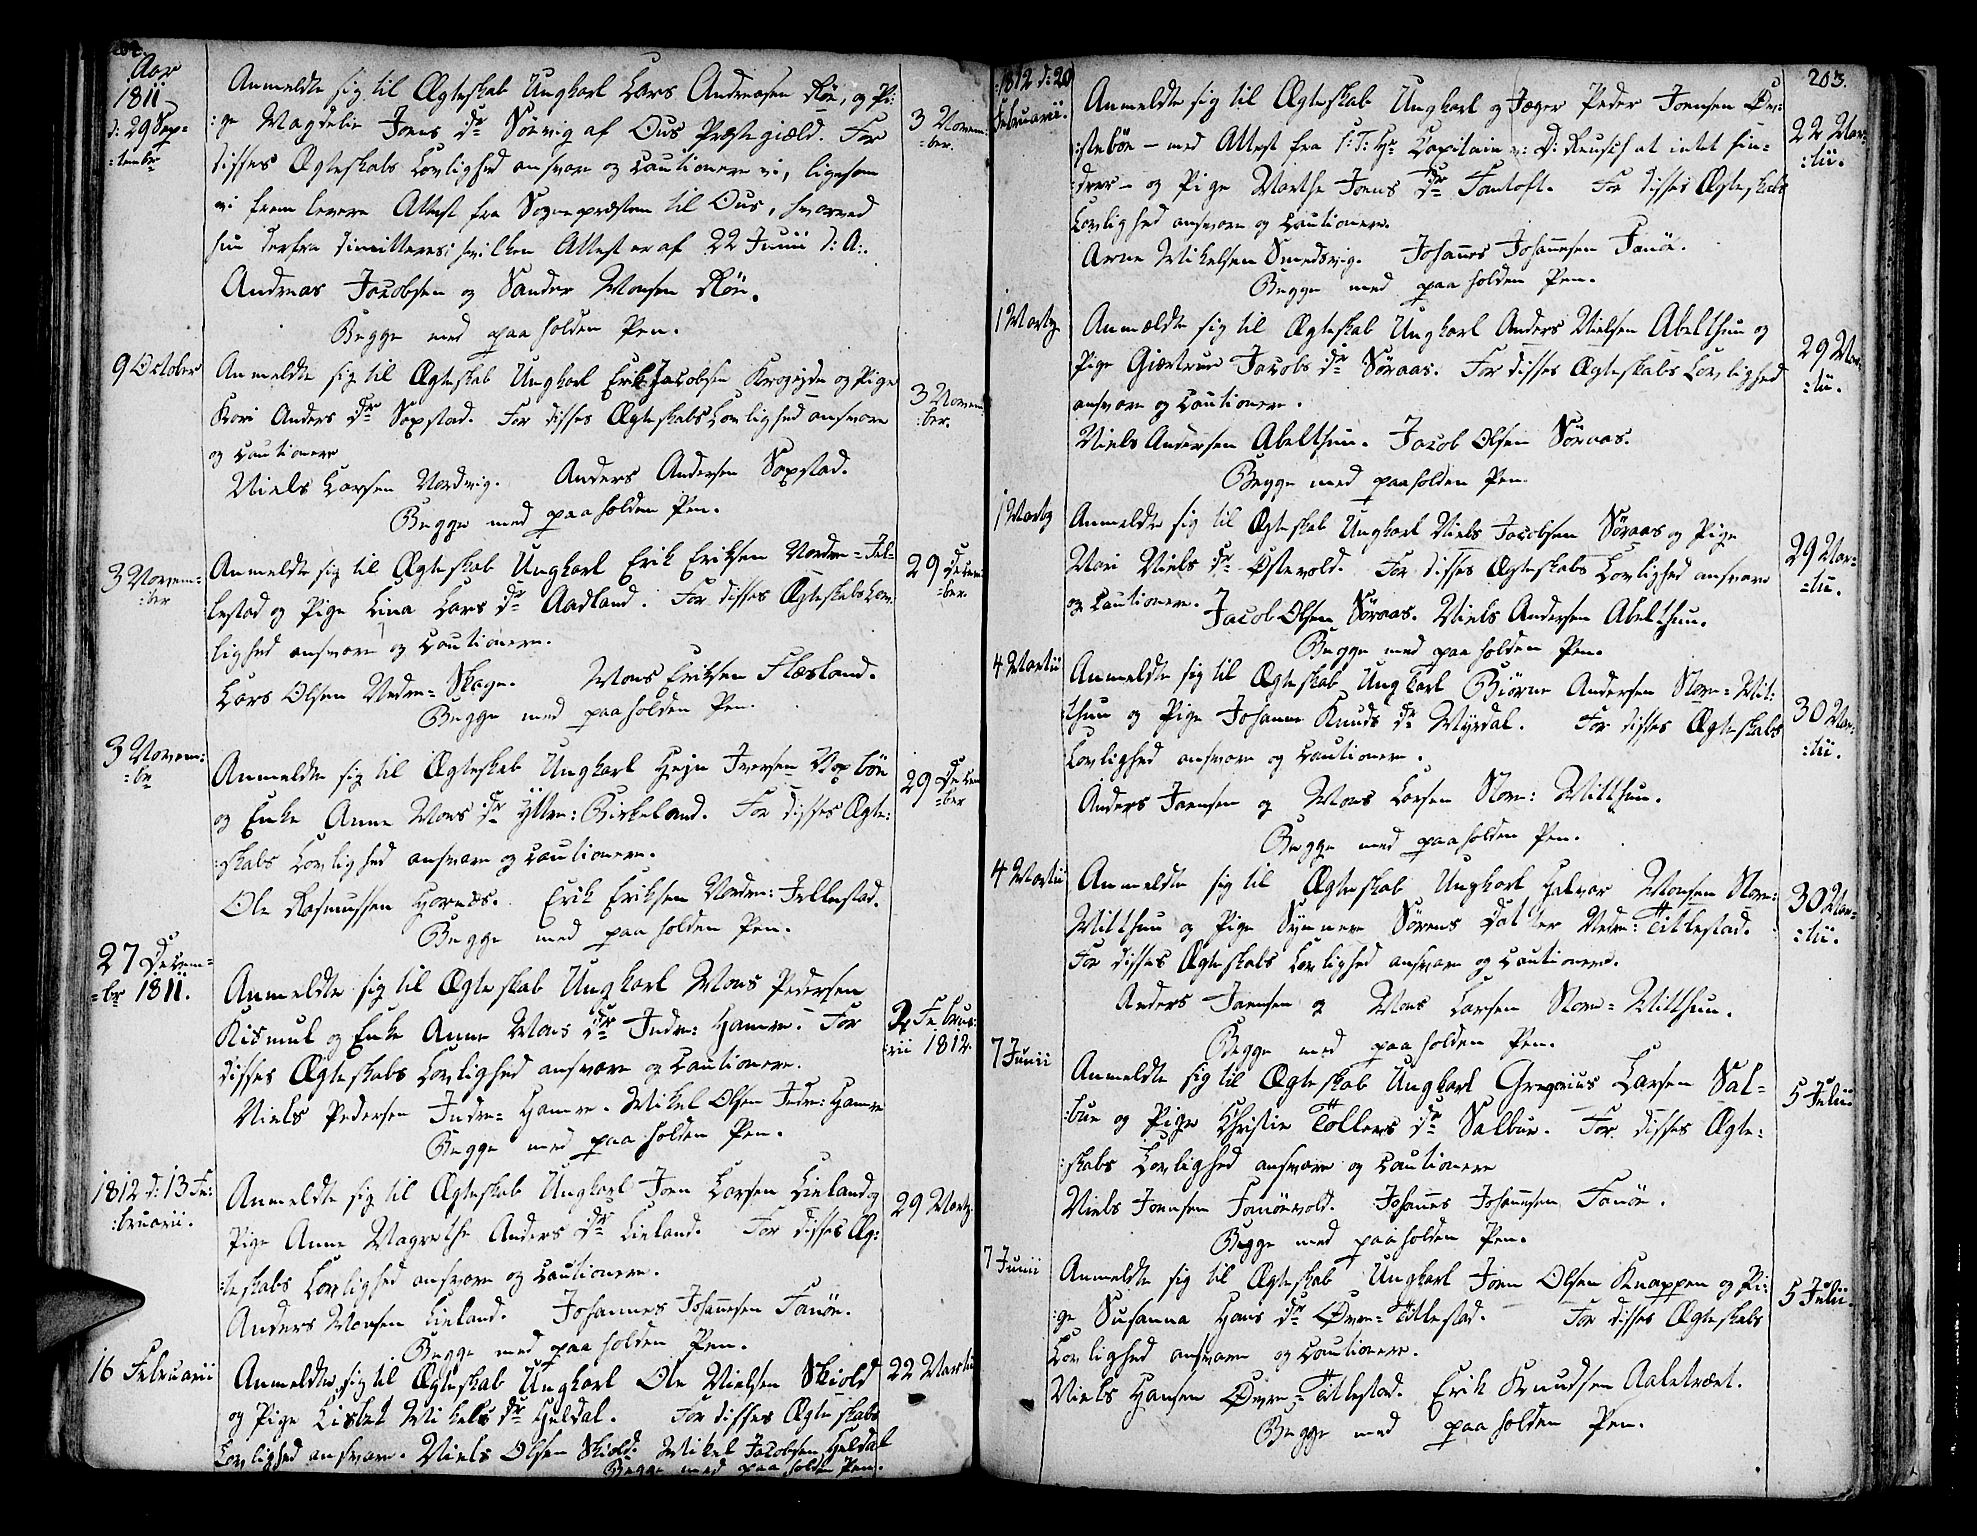 202.
Aar
1811
d: 29 Sep-
:tembr
Anmeldte sig til Ægteskab Ungkarl Lars Andreasen Röe, og Pi-
:ge Magdelie Joens dr Sörvig af Ous Præstegiæld. For
disses Ægteskabs Lovlighed ansvare og Cautionere vi, ligesom
vi fremlevere Attest fra Sognepræsten til Ous, hvorved
hun derfra dimitteres: hvilken Attest er af 22 Junii d: A:.
Andreas Jacobsen og Sander Monsen Röe.
Begge med paaholden Pen.
3 Novem:
:ber.
9 October
Anmeldte sig til Ægteskab Ungkarl Erik Jacobsen Krogeide og Pige
Kari Anders dr Sapstad. For disses Ægteskabs Lovlighed ansvare
og Cautionere
Niels Larsen Nordvig. Anders Andersen Sapstad.
Begge med paaholden Pen.
3 Novem:
:ber.
3 Novem-
:ber
Anmeldte sig til Ægteskab Ungkarl Erik Eriksen Nordre-Fil-
lestad og Pige Lina Lars dr Aadland. For disses Ægteskabs Lov-
lighed ansvare og Cautionere.
Lars Olsen Nedre-Skage. Mons Eriksen Flæsland.
Begge med paaholden Pen.
29 Decem
:ber.
3 Novem:
:br
Anmeldte sig til Ægteskab Ungkarl Heje Iversen Vaxböe
og Enke Anne Mons dr Yttre: Birkeland. For disses Ægte:
:skabs Lovlighed ansvare og Cautionere.
Ole Rasmussen Hornæs. Erik Eriksen Nordre: Fellestad.
Begge med paaholden Pen.
29 Decem
:ber
27 Decem-
:br 1811.
Anmeldte sig til Ægteskab Ungkarl Mons Pedersen
Kismul og Enke Anne Mons dr Indre: Hamre. For
disses Ægteskabs Lovlighed ansvare og Cautionere.
Niels Pedersen Indre: Hamre. Mikel Olsen Indre: Hamre
Begge med paaholden Pen.
2 Februa:
:rii 1812.
1812 d: 13 Fe:
:bruarii.
Anmeldte sig til Ægteskab Ungkarl Joen Larsen Lieland og
Pige Anne Magrethe Anders dr Lieland. For disses Æg:
:teskabs Lovlighed ansvare og Cautionere.
Anders Monsen Lieland. Johannes Johanesen Fanöe.
Begge med paaholden Pen.
29 Martz.
16 Februarii
Anmeldte sig til Ægteskab Ungkarl Ole Nielsen Skiold
og Pige Lisbet Mikels dr Heldal. For disses Ægteskabs
Lovlighed ansvare. Niels Olsen Skiold. Mikel Jacobsen Heldal
Begge med paaholden Pen.
22 Martii
203.
1812 d: 20
Februarii.
Anmeldte sig til Ægteskab Ungkarl og Jæger Peder Joensen
:steböe - med Attest fra S: T: Hr Capitain v: D: Reusch at intet hin-
:drer - og Pige Marthe Joens dr Tomtoft. For disses Ægteskabs
Lovlighed ansvare og Cautionere.
Arne Mikelsen Smedsvig. Johanes Johanesen Fanöe.
Begge med paaholden Pen.
22 Mar:
:tii.
1 Martz
Anmældte sig til Ægteskab Ungkarl Anders Nielsen Abelthun og
Pige Giærtrue Jacobs dr Söraas. For disses Ægteskabs Lovlighed
ansvare og Cautionere.
Niels Andersen Abelthun. Jacob Olsen Söraas.
Begge med paaholden Pen.
29 Mar:
:tii.
1 Martz
Anmeldte sig til Ægteskab Ungkarl Niels Jacobsen Söraas og Pige
Mari Niels dr Østevold. For disses Ægteskabs Lovlighed ansvare
og Cautionere. Jacob Olsen Söraas. Niels Andersen Abelthun.
Begge med paaholden Pen.
29 Mar-
:tii.
4 Martii
Anmeldte sig til Ægteskab Ungkarl Biörne Andersen Store-Mit:
:thun og Pige Johanne Knuds dr Myrdal. For disses Ægteskabs
Lovlighed ansvare og Cautionere.
Anders Joensen og Mons Larsen Store: Mitthun.
Begge med paaholden Pen.
30 Mar:
:tii.
4 Martii
Anmeldte sig til Ægteskab Ungkarl Halvor Monsen Store:
Mitthun og Pige Synneve Sörens Datter Nedre: Titlestad.
For disses Ægteskabs Lovlighed ansvare og Cautionere.
Anders Joensen og Mons Larsen Store-Mitthun.
Begge med paaholden Pen.
30 Mar-
:tii.
7 Junii
Anmeldte sig til Ægteskab Ungkarl Gregorius Larsen Sal-
:bue og Pige Christie Tollevs dr Salbue. For disses Ægte-
:skabs Lovlighed ansvare og Cautionere
Niels Joensen Fanöevold. Johanes Johanesen Fanöe.
Begge med paaholden Pen.
5 Julii.
7 Junii
Anmeldte sig til Ægteskab Ungkarl Joen Olsen Knappen og Pi:
:ge Susanna Hans dr Övre-Titlestad. For disses Ægteskabs
Lovlighed ansvare og Cautionere.
Niels Hansen Övre-Titlestad. Erik Knudsen Aaletræet.
Begge med paaholden Pen.
5 Julii.